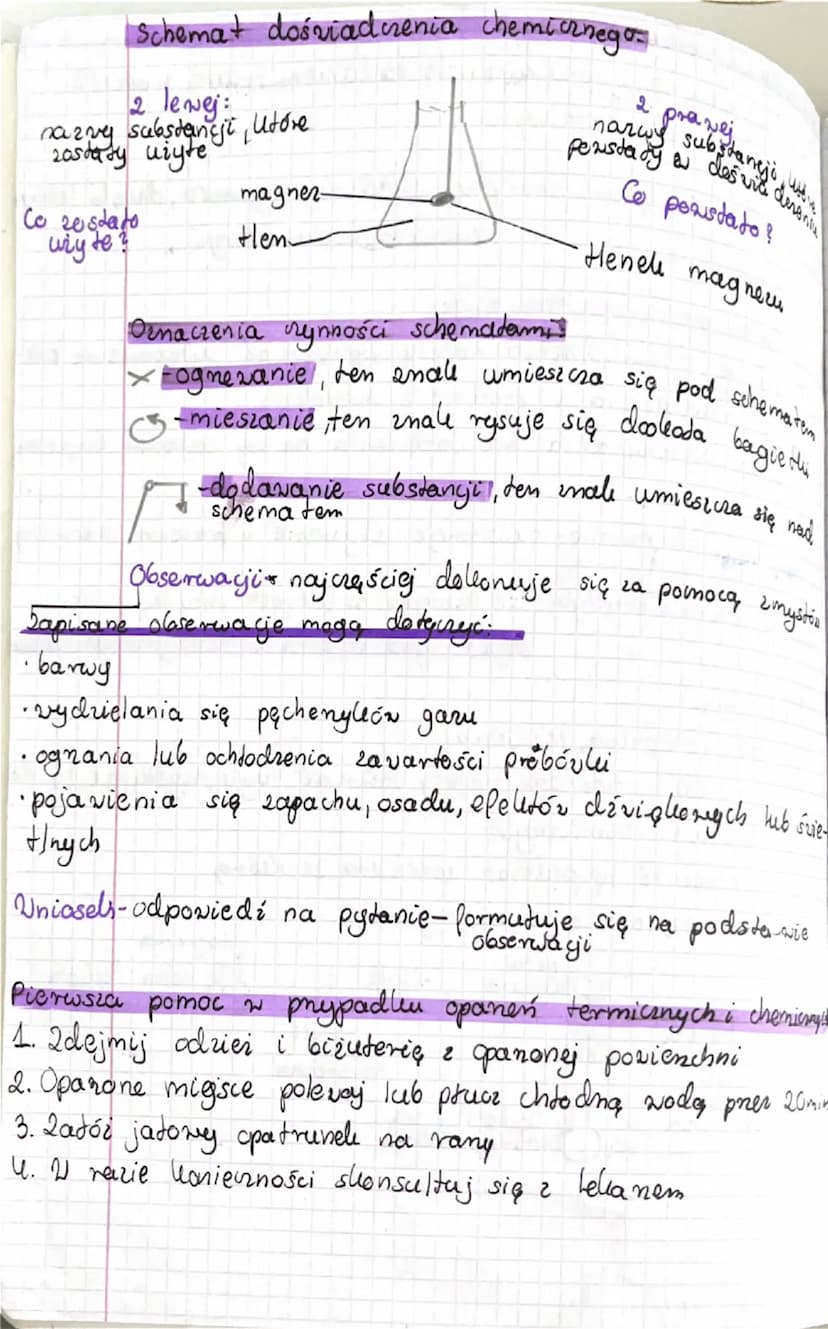 Schemat doświadczenia chemicznego:
Z lewej:
nazwy substancji, które
zostały użyte
Co zostało
użyte?
magnez
tlen
Z prawej
nazwy substancji, które
powstały w doświadczeniu
Co powstało?
tlenek magnezu
Oznaczenia czynności schematami:
× -ogrzewanie, ten znak umieszcza się pod schematem
-mieszanie, ten znak rysuje się dookoła bagietki
-dodawanie substancji, ten znak umieszcza się nad
schematem
Obserwacji - najczęściej dokonuje się za pomocą zmysłów
Zapisane obserwacje mogą dotyczyć:
· barwy
· wydzielania się pęcherzyków gazu
· ogrzania lub ochłodzenia zawartości probówki
· pojawienia się zapachu, osadu, efektów dźwiękowych lub świe-
tlnych
Wniosek - odpowiedź na pytanie - formułuje się na podstawie
obserwacji
Pierwsza pomoc w przypadku oparzeń termicznych i chemicznych
1. Zdejmij odzież i biżuterię z oparzonej powierzchni
2. Oparzone miejsce polewaj lub płucz chłodną wodą przez 20min
3. Załóż jałowy opatrunek na rany
4. W razie konieczności skonsultuj się z lekarzem